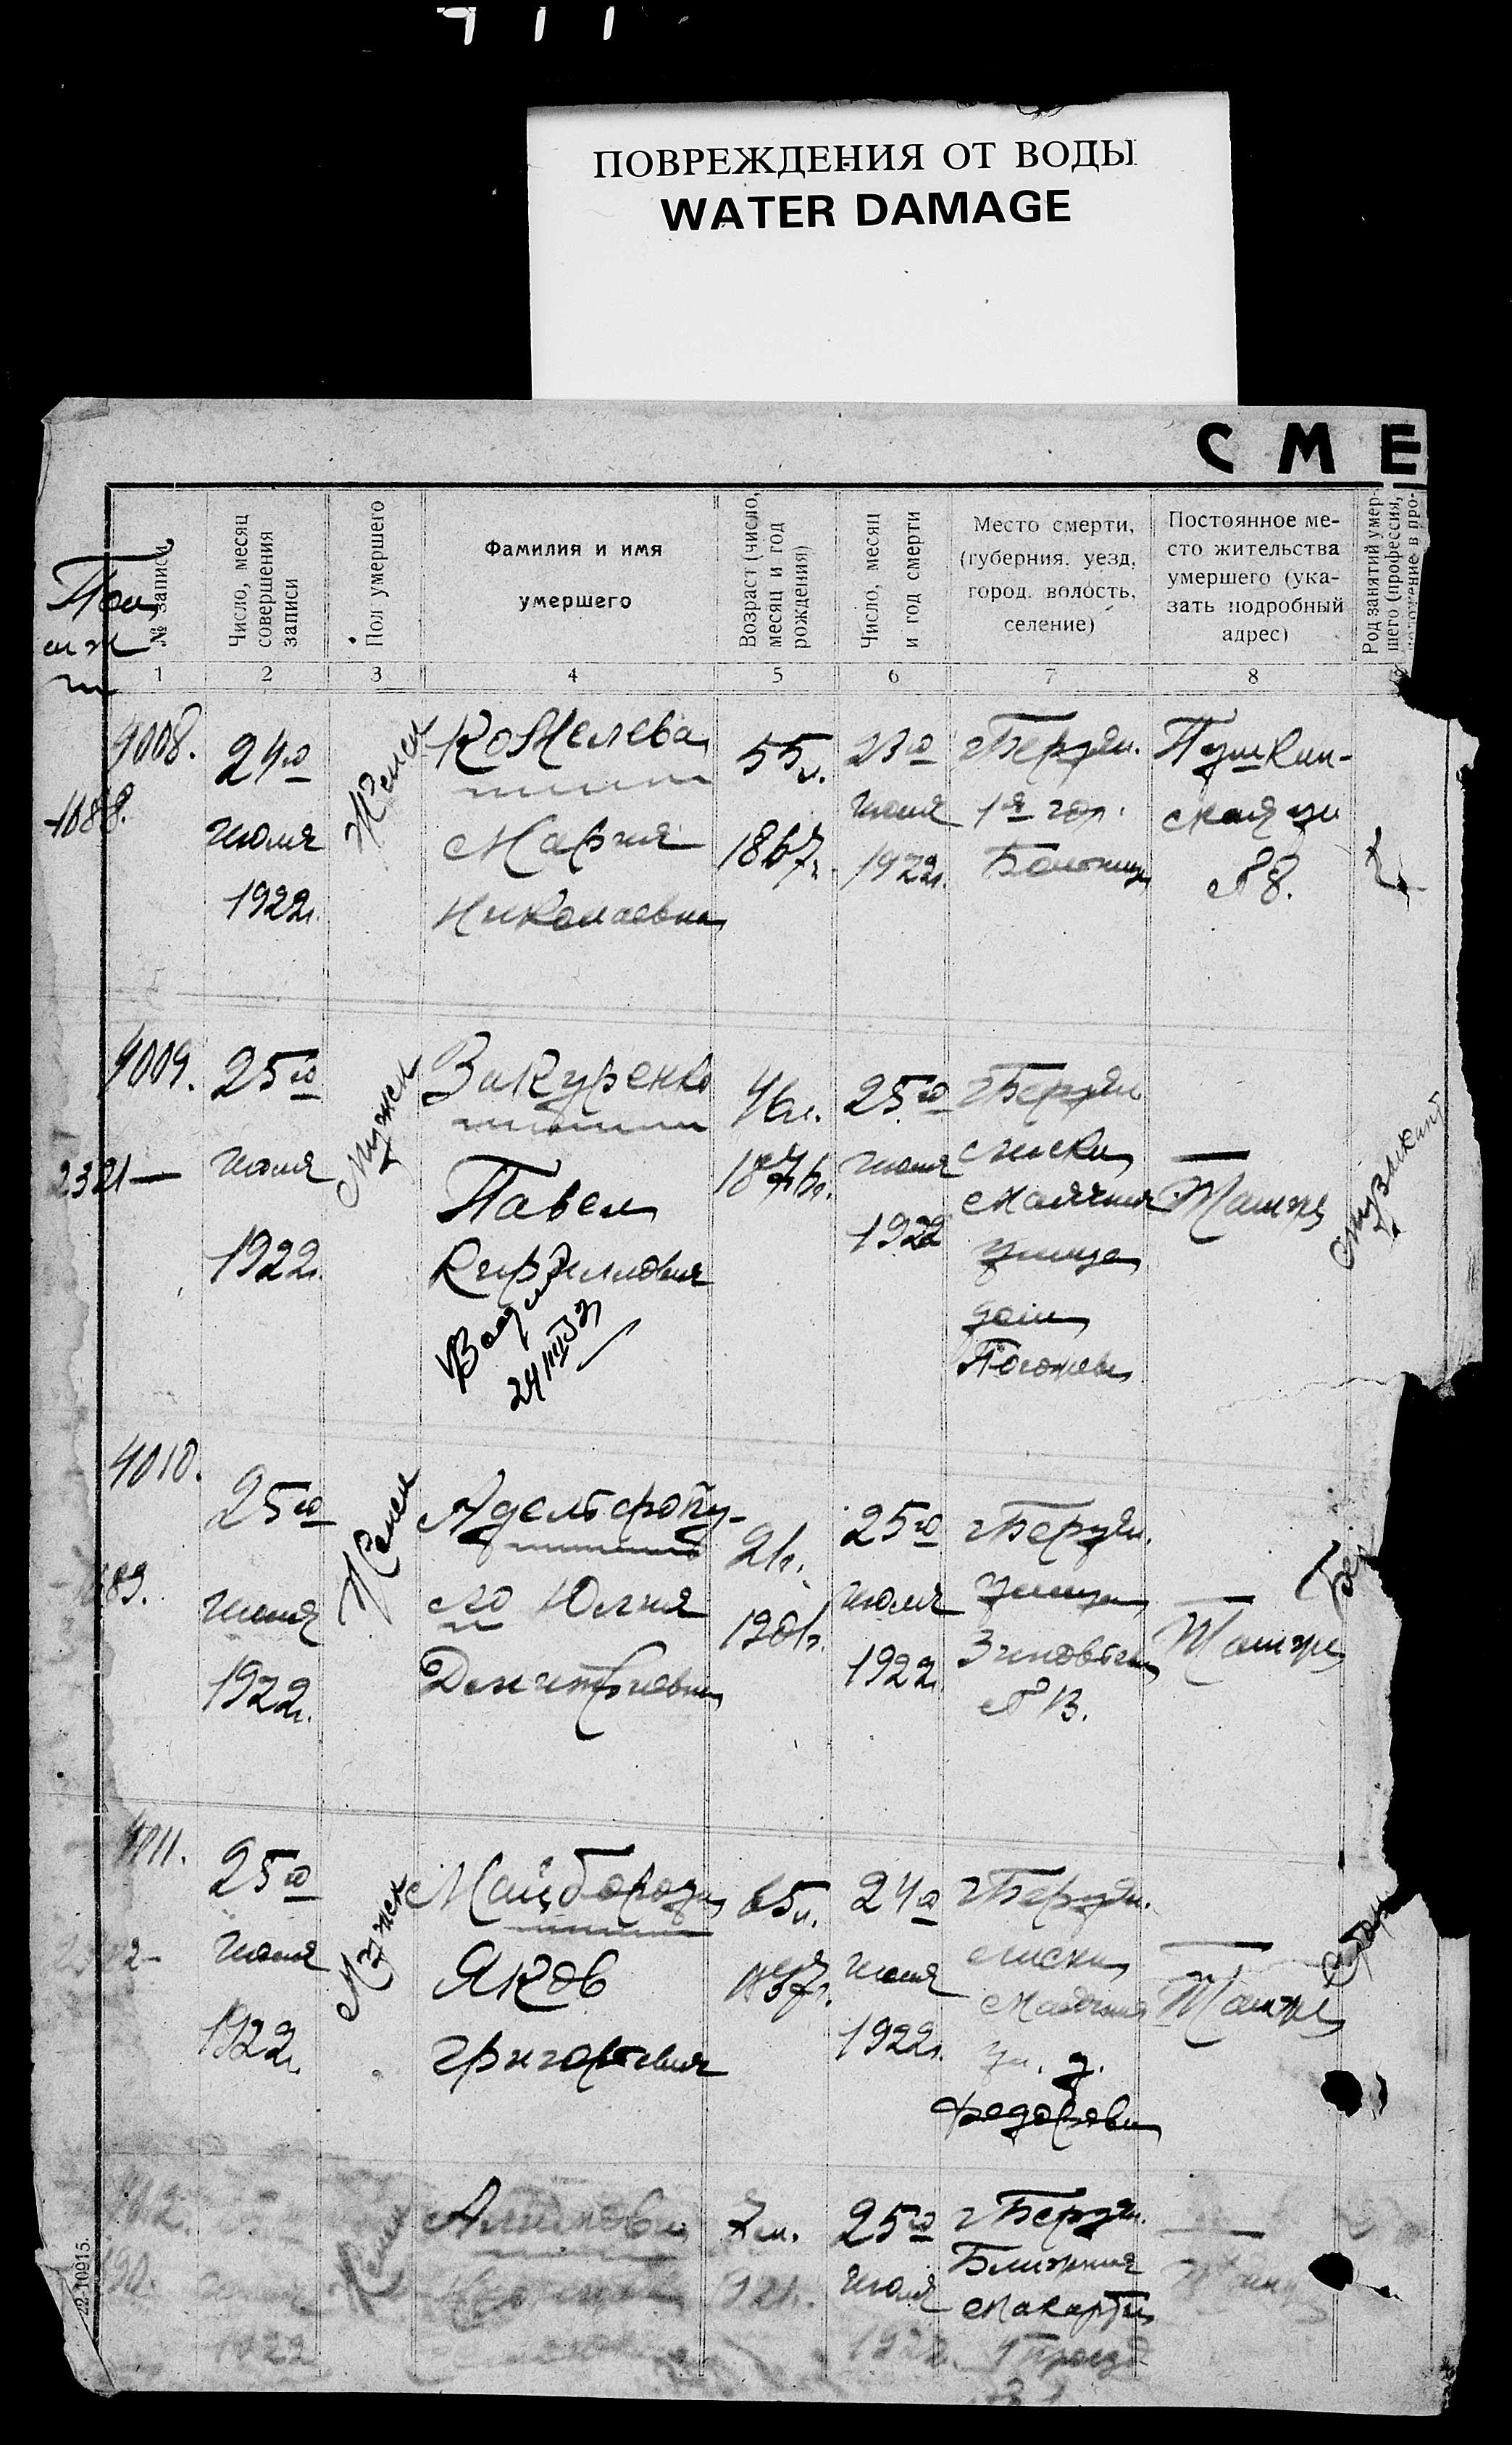 ПОВРЕЖДЕНИЯ ОТ ВОДЫ
WATER DAMAGE
СМЕ
№ записи
Число, месяц совершения записи
Пол умершего
Фамилия и имя умершего
Возраст (число, месяц и год рождения)
Число, месяц и год смерти
Место смерти, (губерния, уезд, город, волость, селение)
Постоянное место жительства умершего (указать подробный адрес)
Род занятий умершего (профессия, положение в про-
1 2 3 4 5 6 7 8
4008.
1088.
24го
июля
1922г.
Женск
Кошелева
Мария
Николаевна
55л.
1867г.
23го
июля
1922г.
г Бердян.
1я гор.
Больница
Пушкин-
ская ул
№ 8.
4009.
2321—
25го
июля
1922г.
Мужск
Закуренко
Павел
Кириллович
46л.
1876г.
25го
июля
1922
г Бердян
Лиски
Маячная
улица
дом
—
Там же
музыкант
4010.
89.
25го
июля
1922г.
Женск
Адельфопу-
ло Юлия
Дмитриевна
21г.
1901г.
25го
июля
1922г.
г Бердян.
улица
Зиновьева
№ 13.
—
Там же
4011.
25го
июля
1922г.
Мужск
Майборода
Яков
Григорьевич
65л.
1857г.
24го
июля
1922г.
г Бердян.
Лиски
Маячная
ул. д.
Федорова
—
Там же
90.
1922
Женск
25го
июля
1922г.
г Бердян.
Ближния
Макорты
1 проезд
22-10915.